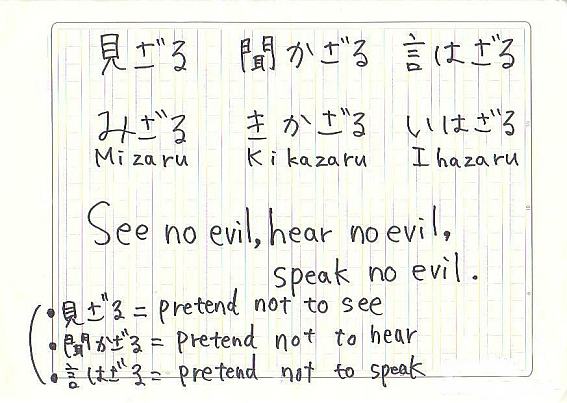 見ざる 聞かざる 言はざる
みざる きかざる いはざる
Mizaru Kikazaru Ihazaru
See no evil, hear no evil,
speak no evil.
・見ざる = pretend not to see
・聞かざる = pretend not to hear
・言はざる = pretend not to speak